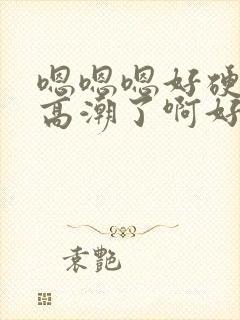 嗯嗯嗯好硬
高潮了啊好
袁艷